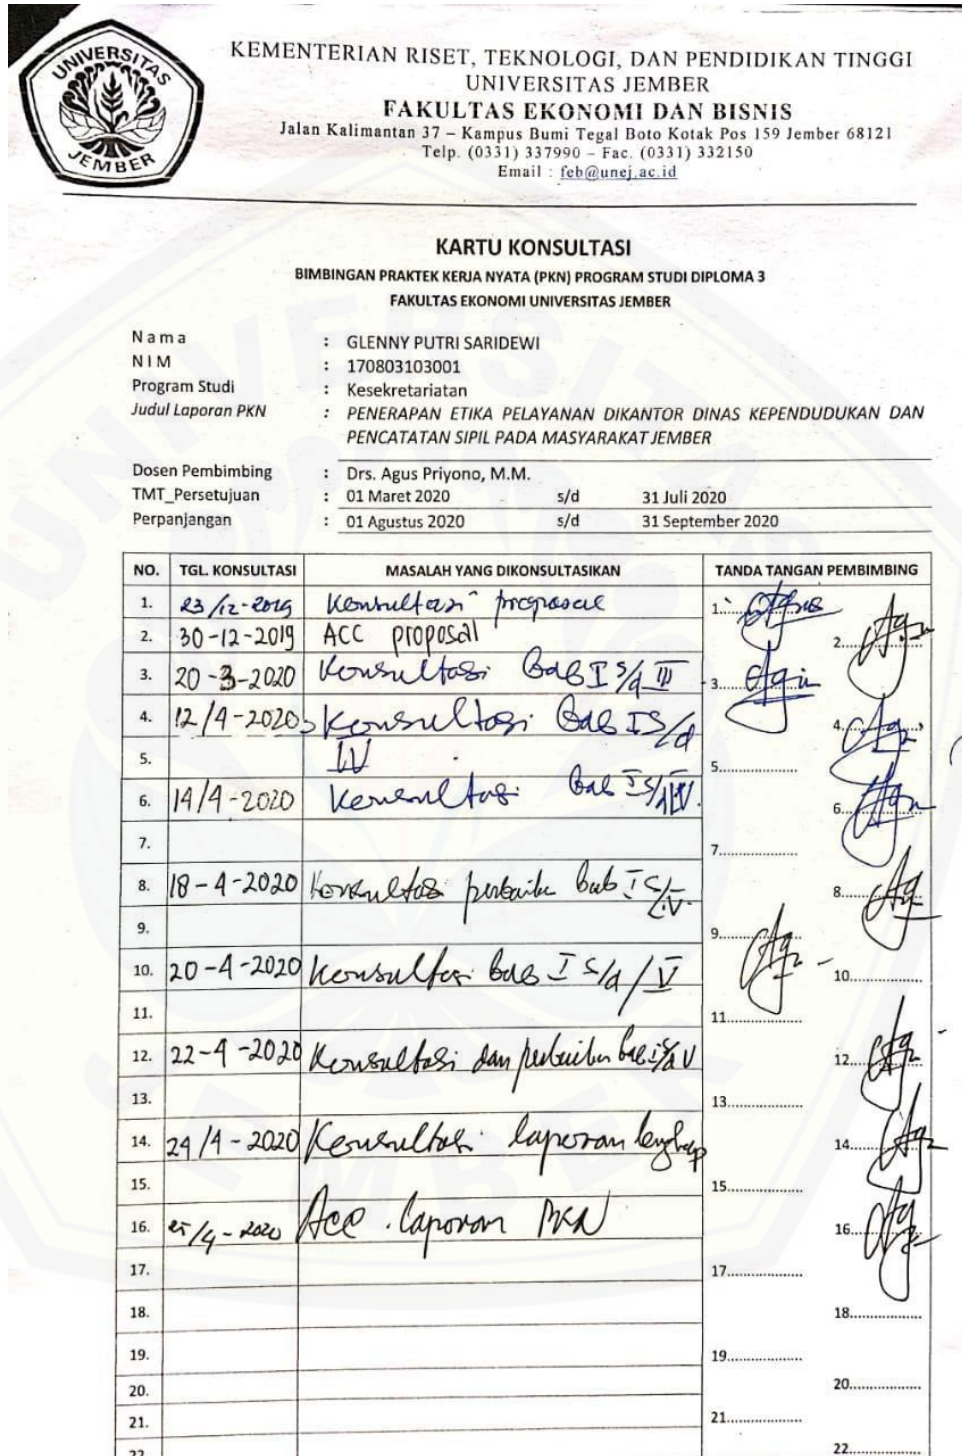 UNIVERSITAS
JEMBER
KEMENTERIAN RISET, TEKNOLOGI, DAN PENDIDIKAN TINGGI
UNIVERSITAS JEMBER
FAKULTAS EKONOMI DAN BISNIS
Jalan Kalimantan 37 – Kampus Bumi Tegal Boto Kotak Pos 159 Jember 68121
Telp. (0331) 337990 – Fac. (0331) 332150
Email : feb@unej.ac.id
KARTU KONSULTASI
BIMBINGAN PRAKTEK KERJA NYATA (PKN) PROGRAM STUDI DIPLOMA 3
FAKULTAS EKONOMI UNIVERSITAS JEMBER
N a m a : GLENNY PUTRI SARIDEWI
N I M : 170803103001
Program Studi : Kesekretariatan
Judul Laporan PKN : PENERAPAN ETIKA PELAYANAN DIKANTOR DINAS KEPENDUDUKAN DAN
PENCATATAN SIPIL PADA MASYARAKAT JEMBER
Dosen Pembimbing : Drs. Agus Priyono, M.M.
TMT_Persetujuan : 01 Maret 2020 s/d 31 Juli 2020
Perpanjangan : 01 Agustus 2020 s/d 31 September 2020
NO. TGL. KONSULTASI MASALAH YANG DIKONSULTASIKAN TANDA TANGAN PEMBIMBING
1. 23/12-2019 Konsultasi proposal 1.
2. 30-12-2019 ACC proposal 2.
3. 20-3-2020 Konsultasi Bab I s/d III 3.
4. 12/4-2020 Konsultasi Bab I s/d 4.
5. IV 5.
6. 14/4-2020 Konsultasi Bab I s/d IV. 6.
7. 7.
8. 18-4-2020 Konsultasi Bab I s/d V. 8.
9. 9.
10. 20-4-2020 Konsultasi bab I s/d V 10.
11. 11.
12. 22-4-2020 Konsultasi dan bab I s/d V 12.
13. 13.
14. 24/4-2020 Konsultasi laporan lengkap 14.
15. 15.
16. 25/4-2020 Acc laporan PKN 16.
17. 17.
18. 18.
19. 19.
20. 20.
21. 21.
22. 22.